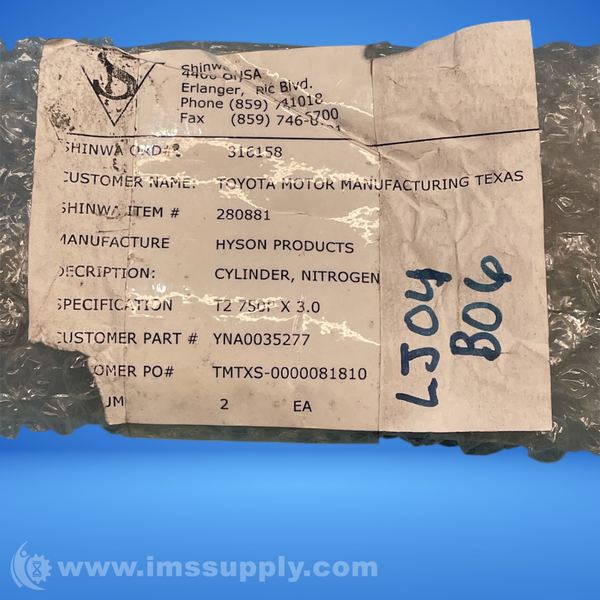 Erlanger, Blvd.
Phone (859)
Fax (859) 746-
SHINWA ORD# 316158
CUSTOMER NAME: TOYOTA MOTOR MANUFACTURING TEXAS
SHINWA ITEM # 280881
MANUFACTURE HYSON PRODUCTS
DECRIPTION: CYLINDER, NITROGEN
SPECIFICATION T2 750F X 3.0
CUSTOMER PART # YNA0035277
OMER PO# TMTXS-0000081810
UM 2 EA
LJ04
B06
www.imssupply.com